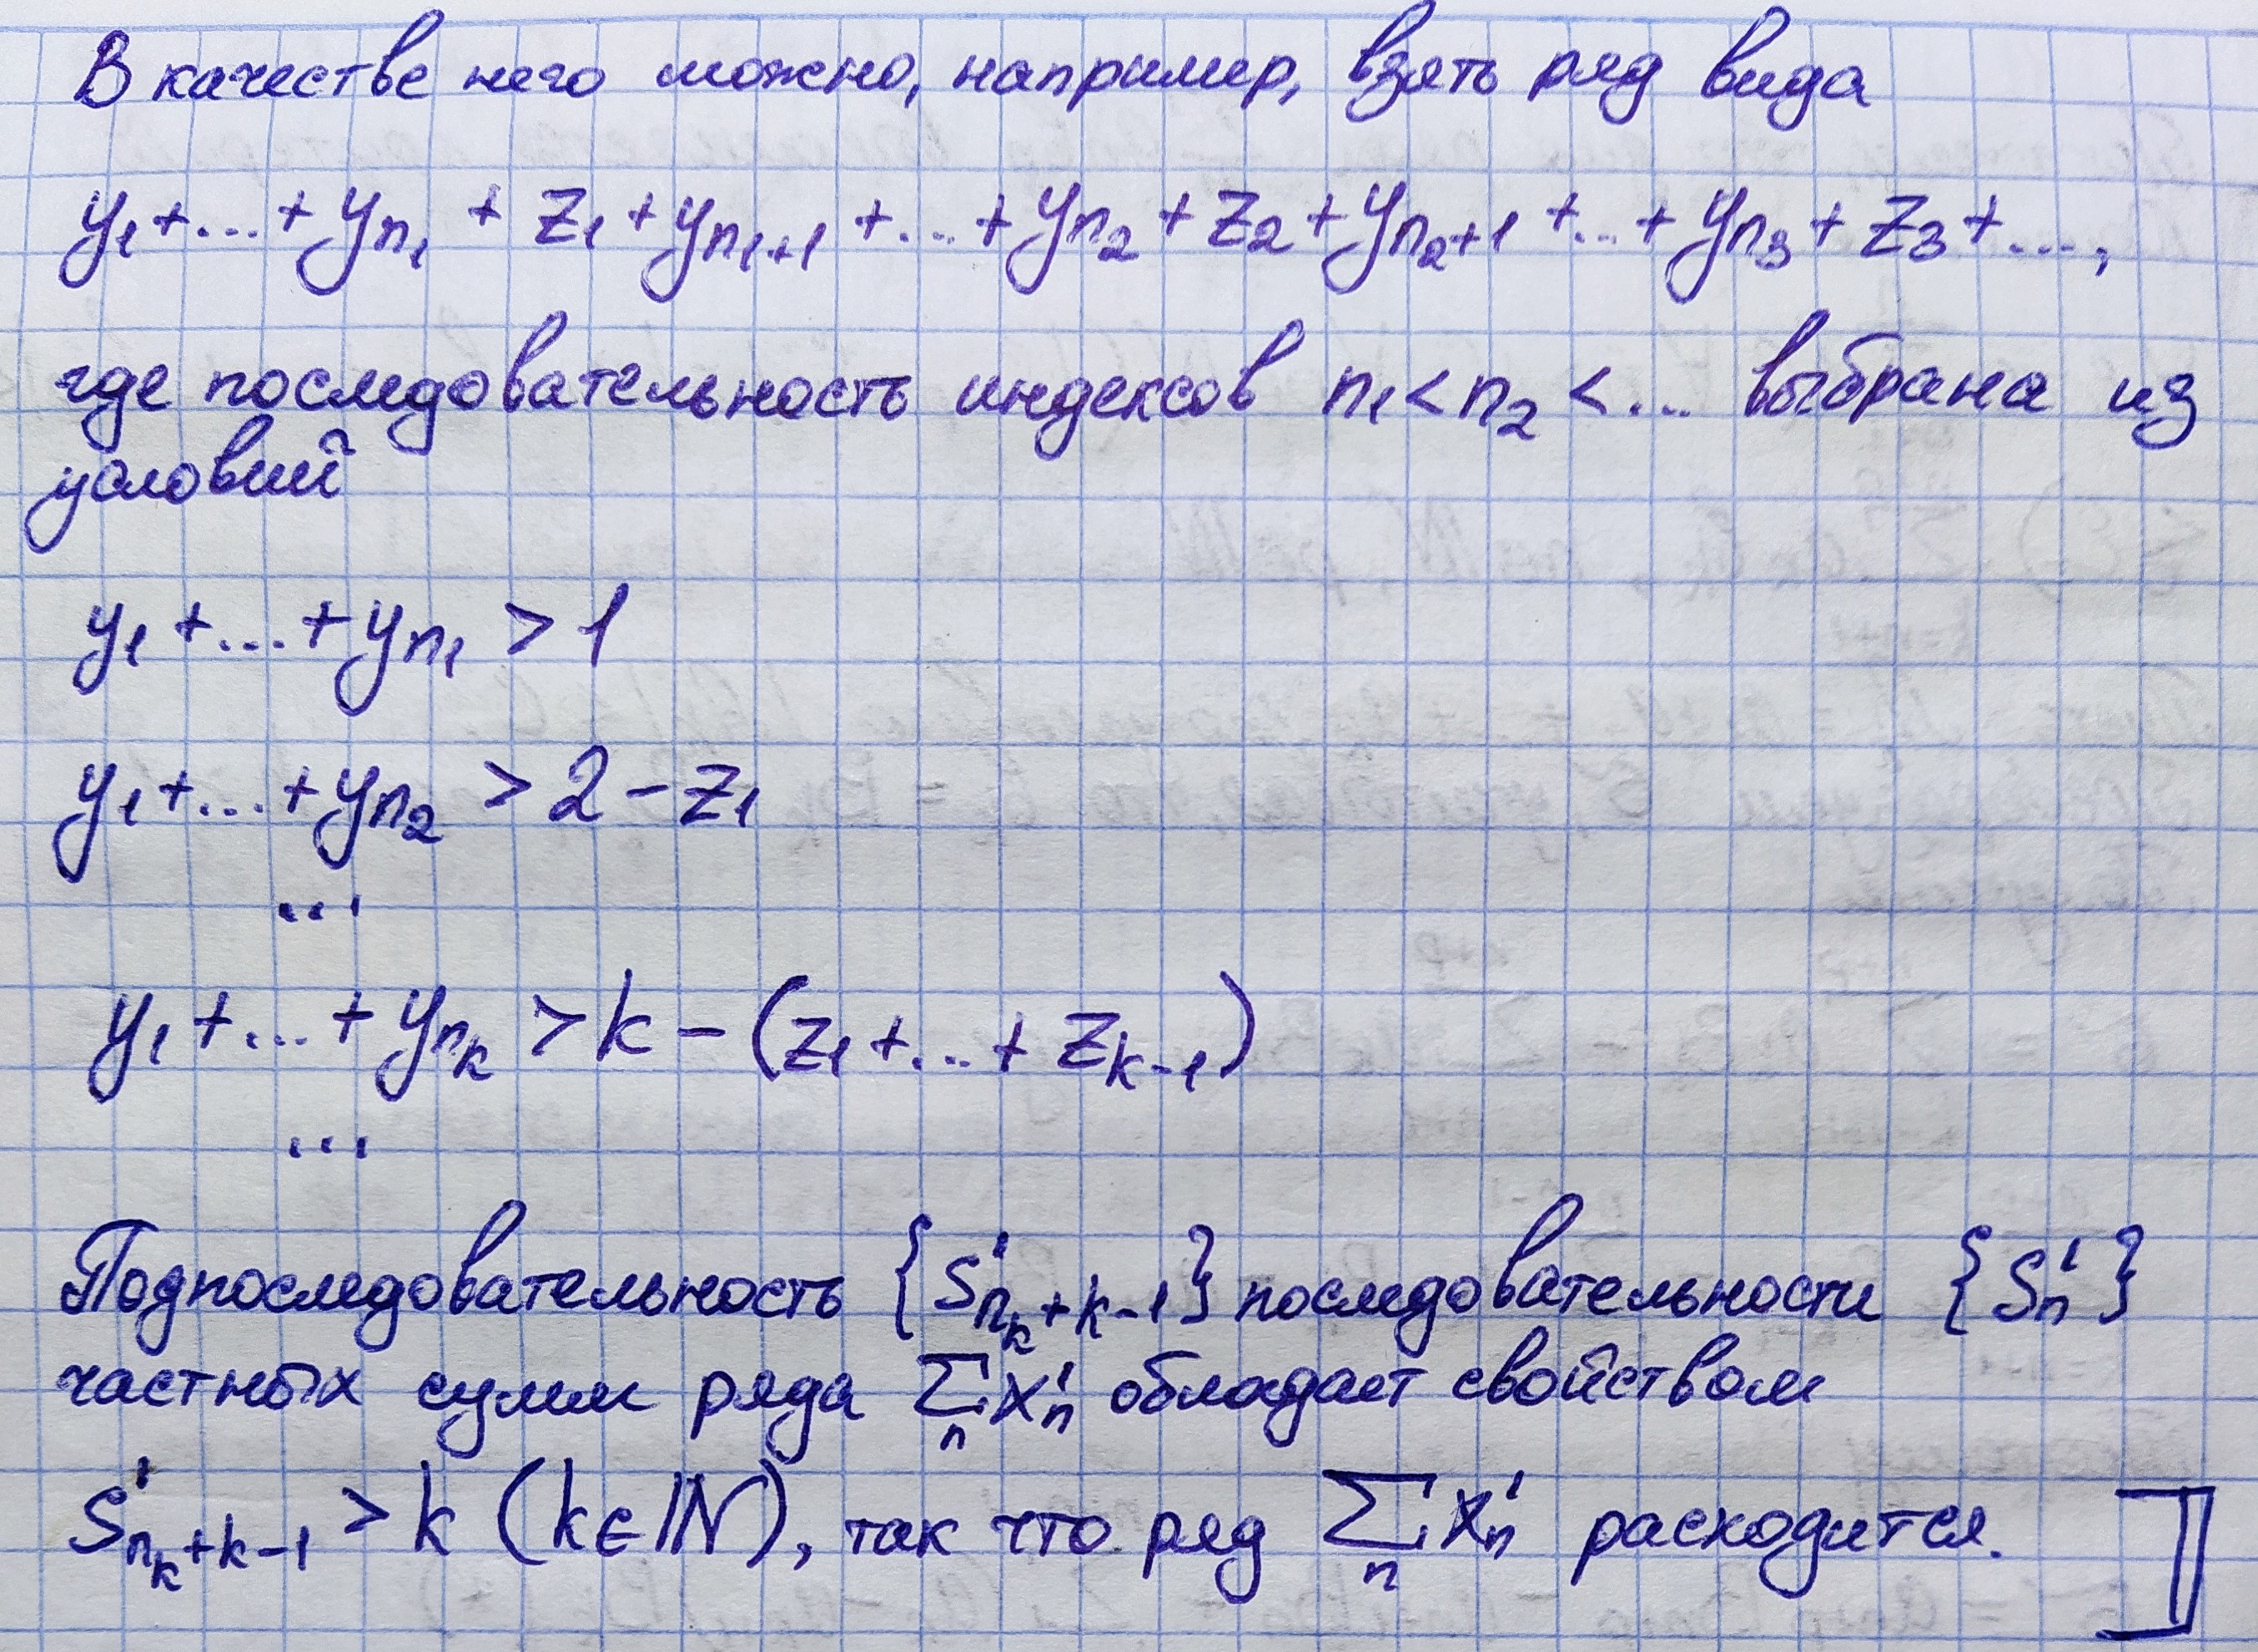 В качестве него можно, например, взять ряд вида
y₁+...+yₙ₁ + z₁+yₙ₁₊₁ +...+yₙ₂+z₂+yₙ₂₊₁ +...+yₙ₃+z₃+...,
где последовательность индексов n₁<n₂<... выбрана из
условий
y₁+...+yₙ₁ > 1
y₁+...+yₙ₂ > 2-z₁
...
y₁+...+y_{n_k} > k-(z₁+...+z_{k-1})
...
Подпоследовательность {S'_{n_k+k-1}} последовательности {S'_n}
частных сумм ряда ∑_n x'_n обладает свойством
S'_{n_k+k-1} > k (k∈ℕ), так что ряд ∑_n x'_n расходится. ]